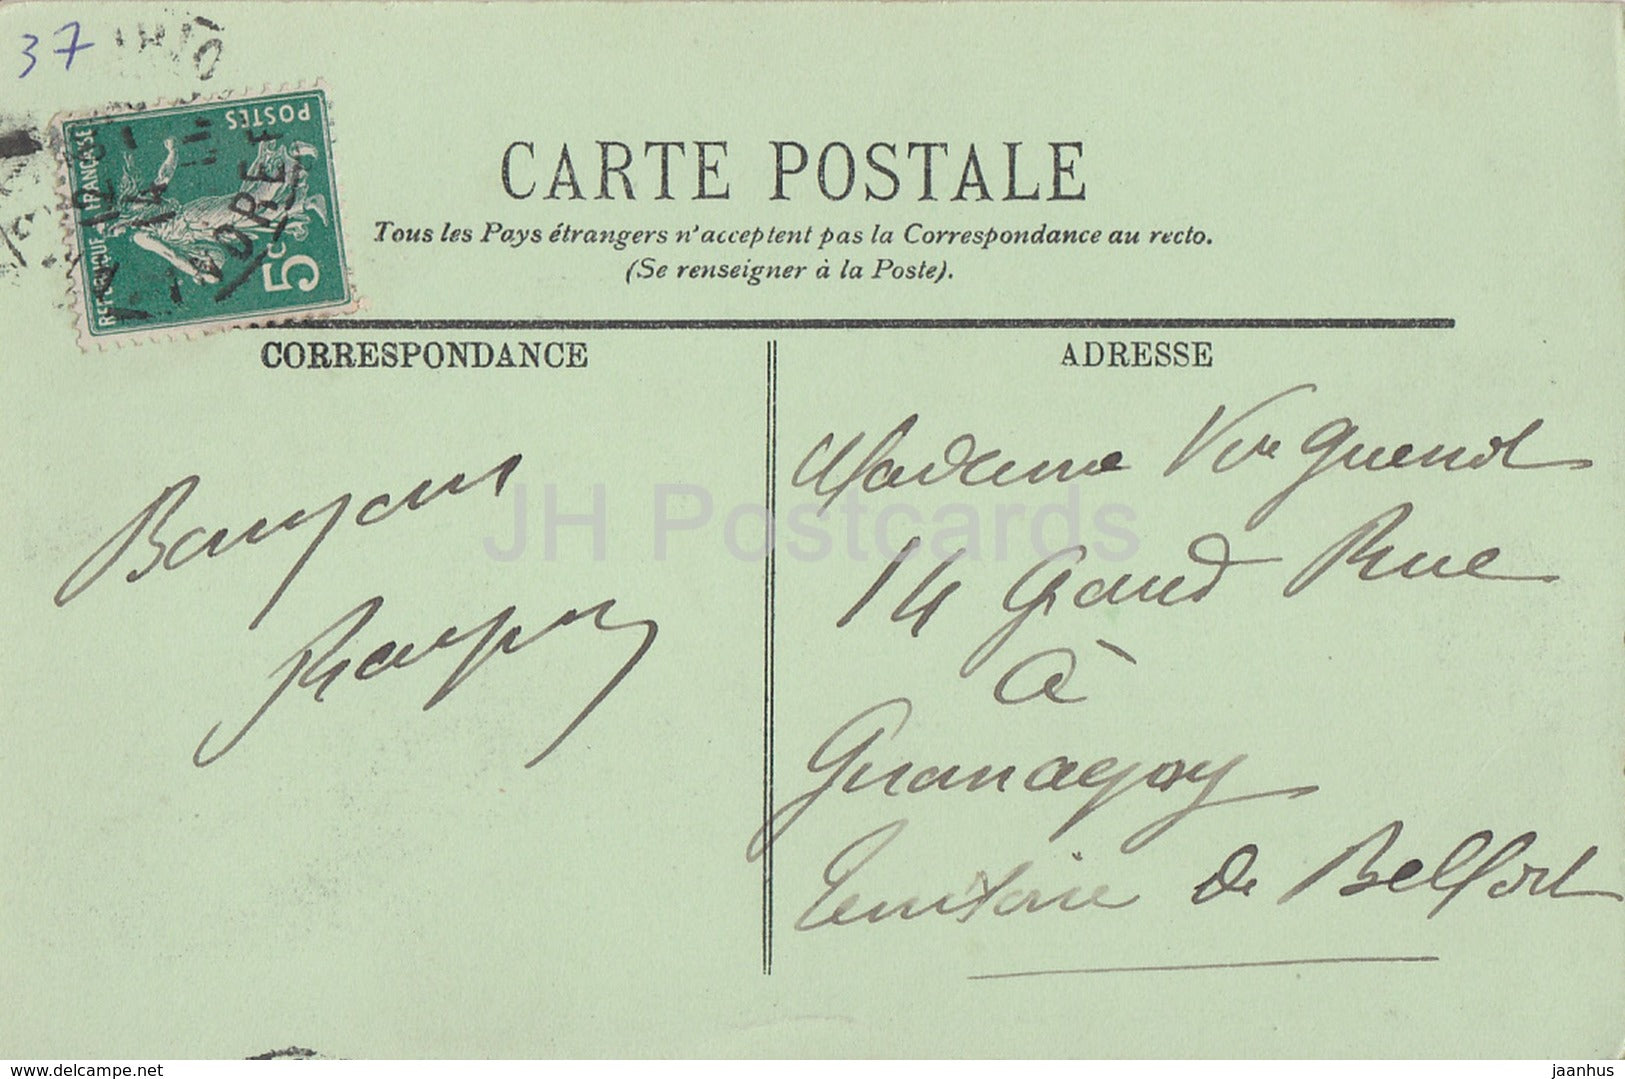 37
POSTES
REPUBLIQUE FRANÇAISE
5c
CARTE POSTALE
Tous les Pays étrangers n'acceptent pas la Correspondance au recto.
(Se renseigner à la Poste).
CORRESPONDANCE
ADRESSE
Madame Vve Guenot
14 Grand Rue
à
Territoire de Belfort
JH Postcards
www.delcampe.net
jaanhus